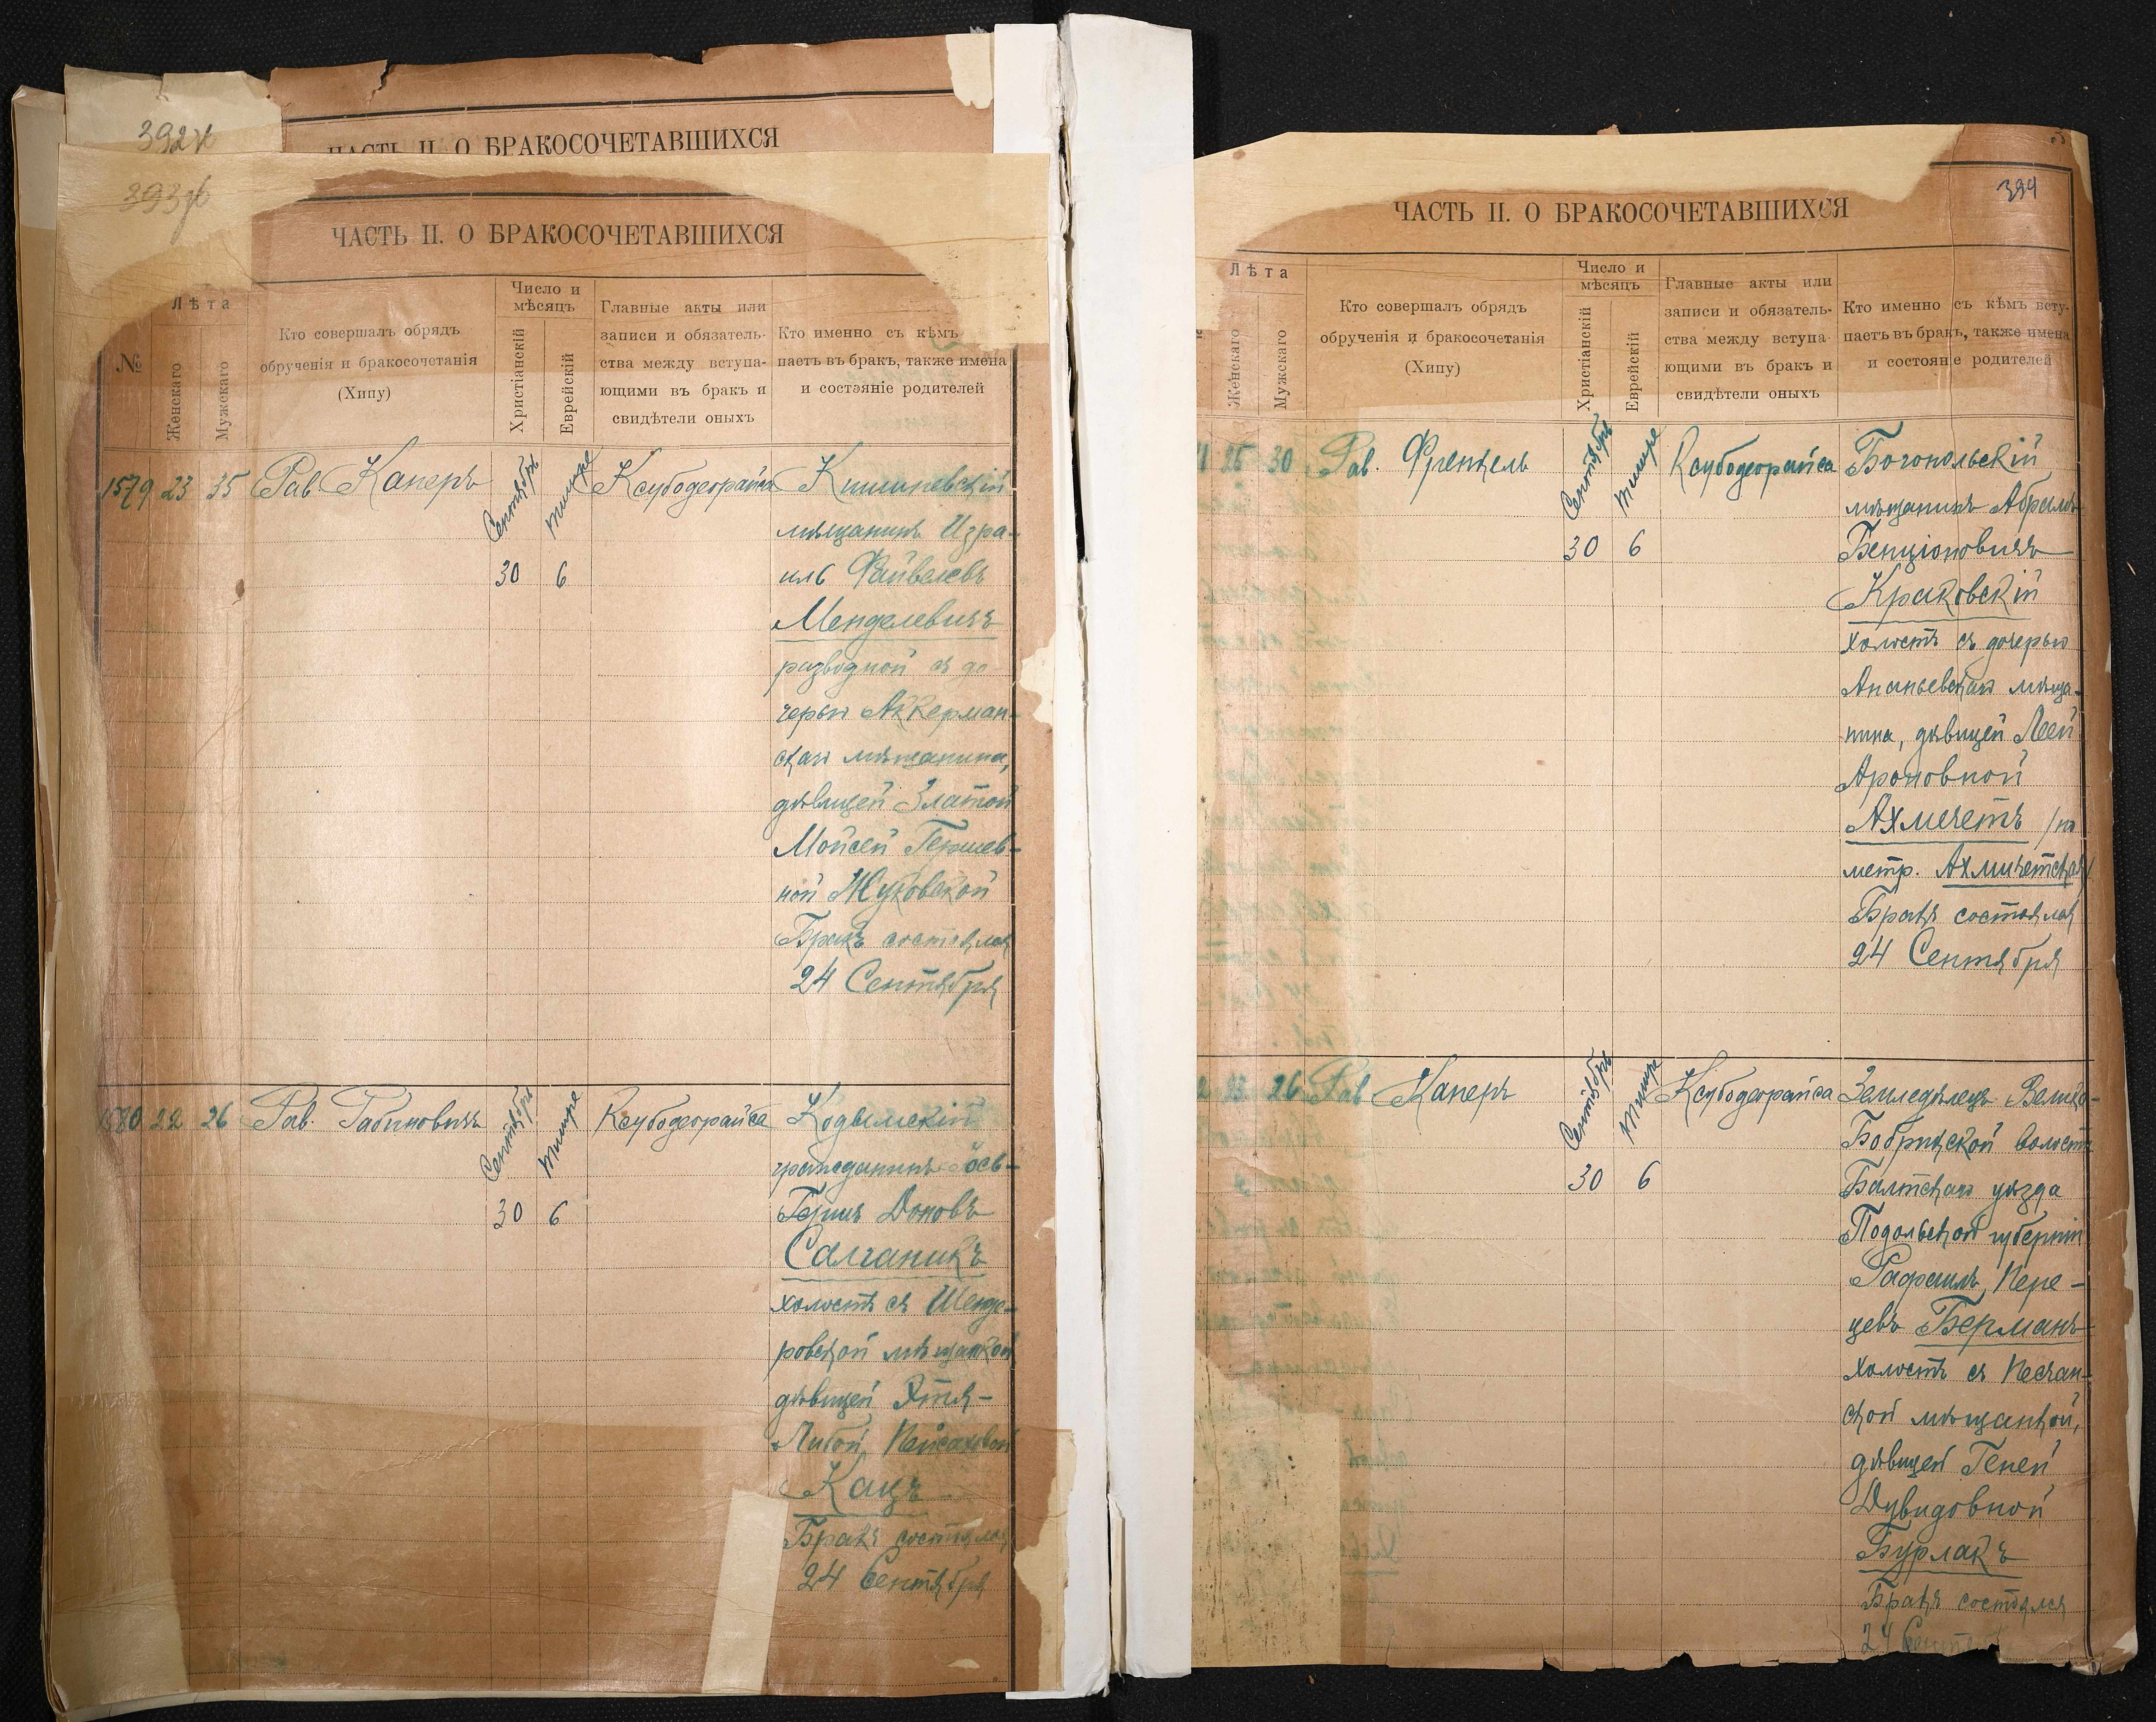 392 ж
ЧАСТЬ II. О БРАКОСОЧЕТАВШИХСЯ
393 ж
ЧАСТЬ II. О БРАКОСОЧЕТАВШИХСЯ
№
Лѣта
Женскаго
Мужскаго
Кто совершалъ обрядъ
обрученія и бракосочетанія
(Хипу)
Число и
мѣсяцъ
Христіанскій
Еврейскій
Главные акты или
записи и обязатель-
ства между вступа-
ющими въ бракъ и
свидѣтели оныхъ
Кто именно съ кѣмъ
паетъ въ бракъ, также имена
и состояніе родителей
1579 23 35 Рав. Каперъ
Сентябрь
Тишре
30 6
Ксубодеорайса
Кишиневскій
мѣщанинъ Изра-
иль Файвелевъ
Менделевичъ
разводной съ до-
черью Аккерман-
скаго мѣщанина,
дѣвицей Златой
Мойсей Гершев-
ной Жуковской
Бракъ состоялся
24 Сентября
1580 22 26 Рав. Рабиновичъ
Сентябрь
Тишре
30 6
Ксубодеорайса
Кодымскій
гражданинъ Іось-
Герш Доновъ
Салганикъ
холостъ съ Шенде-
ровской мѣщанкой
дѣвицей Этля-
Либой Пейсаховой
Кацъ
Бракъ состоялся
24 Сентября
394
ЧАСТЬ II. О БРАКОСОЧЕТАВШИХСЯ
Лѣта
Женскаго
Мужскаго
Кто совершалъ обрядъ
обрученія и бракосочетанія
(Хипу)
Число и
мѣсяцъ
Христіанскій
Еврейскій
Главные акты или
записи и обязатель-
ства между вступа-
ющими въ бракъ и
свидѣтели оныхъ
Кто именно съ кѣмъ всту-
паетъ въ бракъ, также имена
и состояніе родителей
1 25 30 Рав. Френкель
Сентябрь
Тишре
30 6
Ксубодеорайса
Богопольскій
мѣщанинъ Абрамъ
Бенціоновичъ
Краковскій
холостъ съ дочерью
Ананьевскаго мѣща-
нина, дѣвицей Леей
Ароновной
Ахмечетъ /по
метр. Ахмичетская/
Бракъ состоялся
24 Сентября
2 23 26 Рав. Каперъ
Сентябрь
Тишре
30 6
Ксубодеорайса
Земледѣлецъ Велико-
Бобрицской волости
Балтскаго уѣзда
Подольской губерніи
Рафаилъ Пере-
цевъ Берманъ
холостъ съ Песчан-
ской мѣщанкой,
дѣвицей Геней
Дувидовной
Бурлакъ
Бракъ состоялся
24